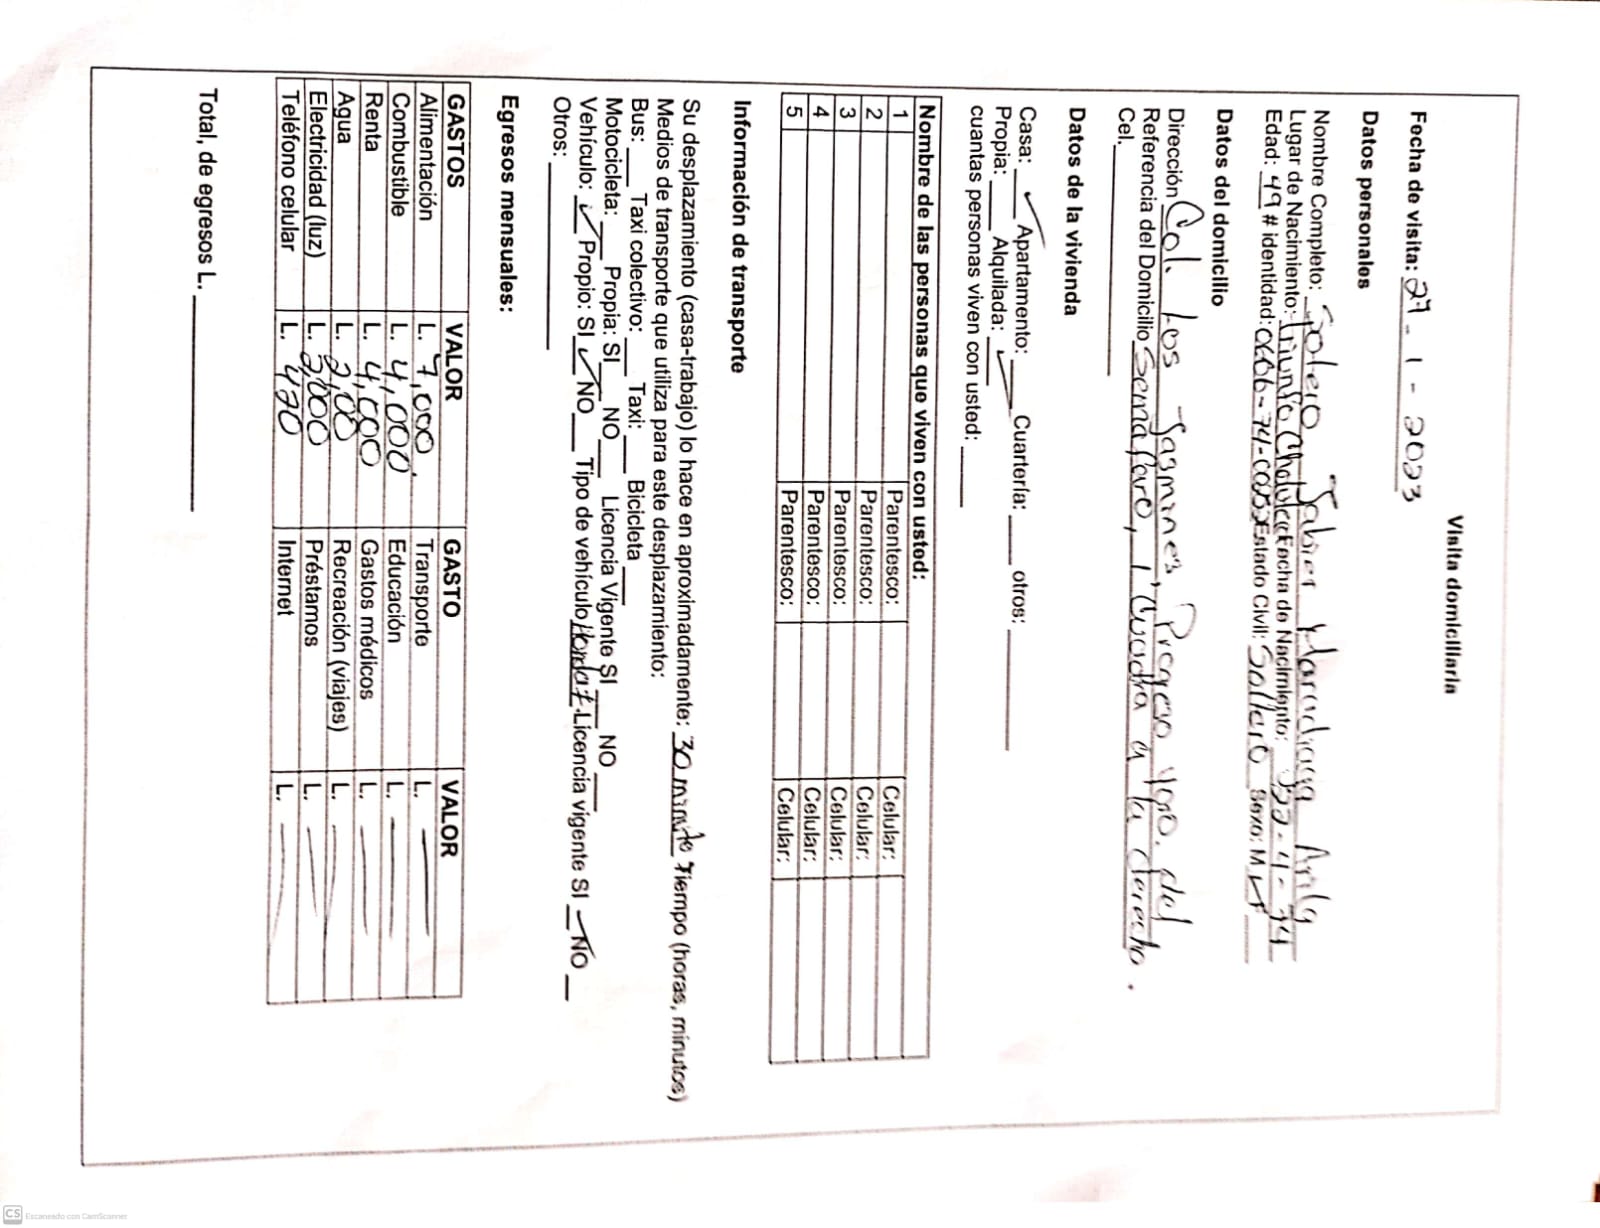 Visita domiciliaria
Fecha de visita: 27-1-2023
Datos personales
Nombre Completo: Sotero Jabier Maradiaga
Lugar de Nacimiento: Triunfo Choluteca Fecha de Nacimiento: 22-4-74
Edad: 49 # identidad: Estado Civil: Soltero Sexo: M
Datos del domicilio
Dirección Col. Los Jasmines Progreso Yoro. del
Referencia del Domicilio Semaforo, 1 Cuadra a la derecha.
Cel.
Datos de la vivienda
Casa: ✓ Apartamento: ____ Cuartería: ____ otros: ____
Propia: ____ Alquilada: ✓
cuantas personas viven con usted: ____
Nombre de las personas que viven con usted:
1 Parentesco: Celular:
2 Parentesco: Celular:
3 Parentesco: Celular:
4 Parentesco: Celular:
5 Parentesco: Celular:
Información de transporte
Su desplazamiento (casa-trabajo) lo hace en aproximadamente: 30 minuto Tiempo (horas, minutos)
Medios de transporte que utiliza para este desplazamiento:
Bus: ___ Taxi colectivo: ___ Taxi: ___ Bicicleta ___
Motocicleta: ___ Propia: SI ___ NO ___ Licencia Vigente SI ___ NO ___
Vehículo: ✓ Propio: SI ✓ NO ___ Tipo de vehículo Licencia vigente SI ✓ NO __
Otros: ____
Egresos mensuales:
GASTOS VALOR GASTO VALOR
Alimentación L. 7,000. Transporte L. —
Combustible L. 4,000 Educación L. —
Renta L. 4,000 Gastos médicos L. —
Agua L. 2,00 Recreación (viajes) L. —
Electricidad (luz) L. 2,000 Préstamos L. —
Teléfono celular L. 420 Internet L. —
Total, de egresos L. ____
CS Escaneado con CamScanner